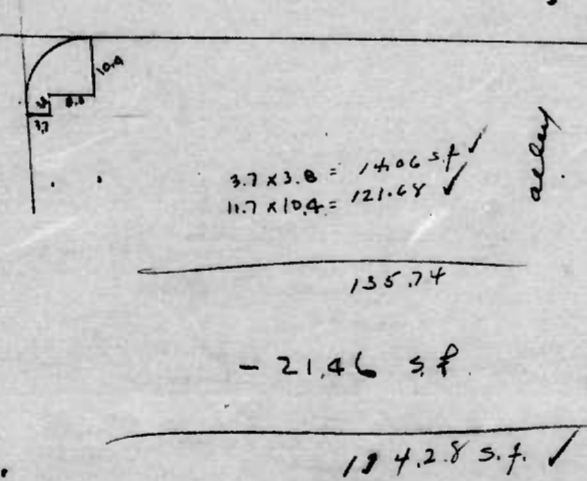 10.4
8.0
3.7
3.7 x 3.8 = 14.06 s.f ✓
11.7 x 10.4 = 121.68 ✓
alley
135.74
- 21.46 s.f.
114.28 s.f. ✓